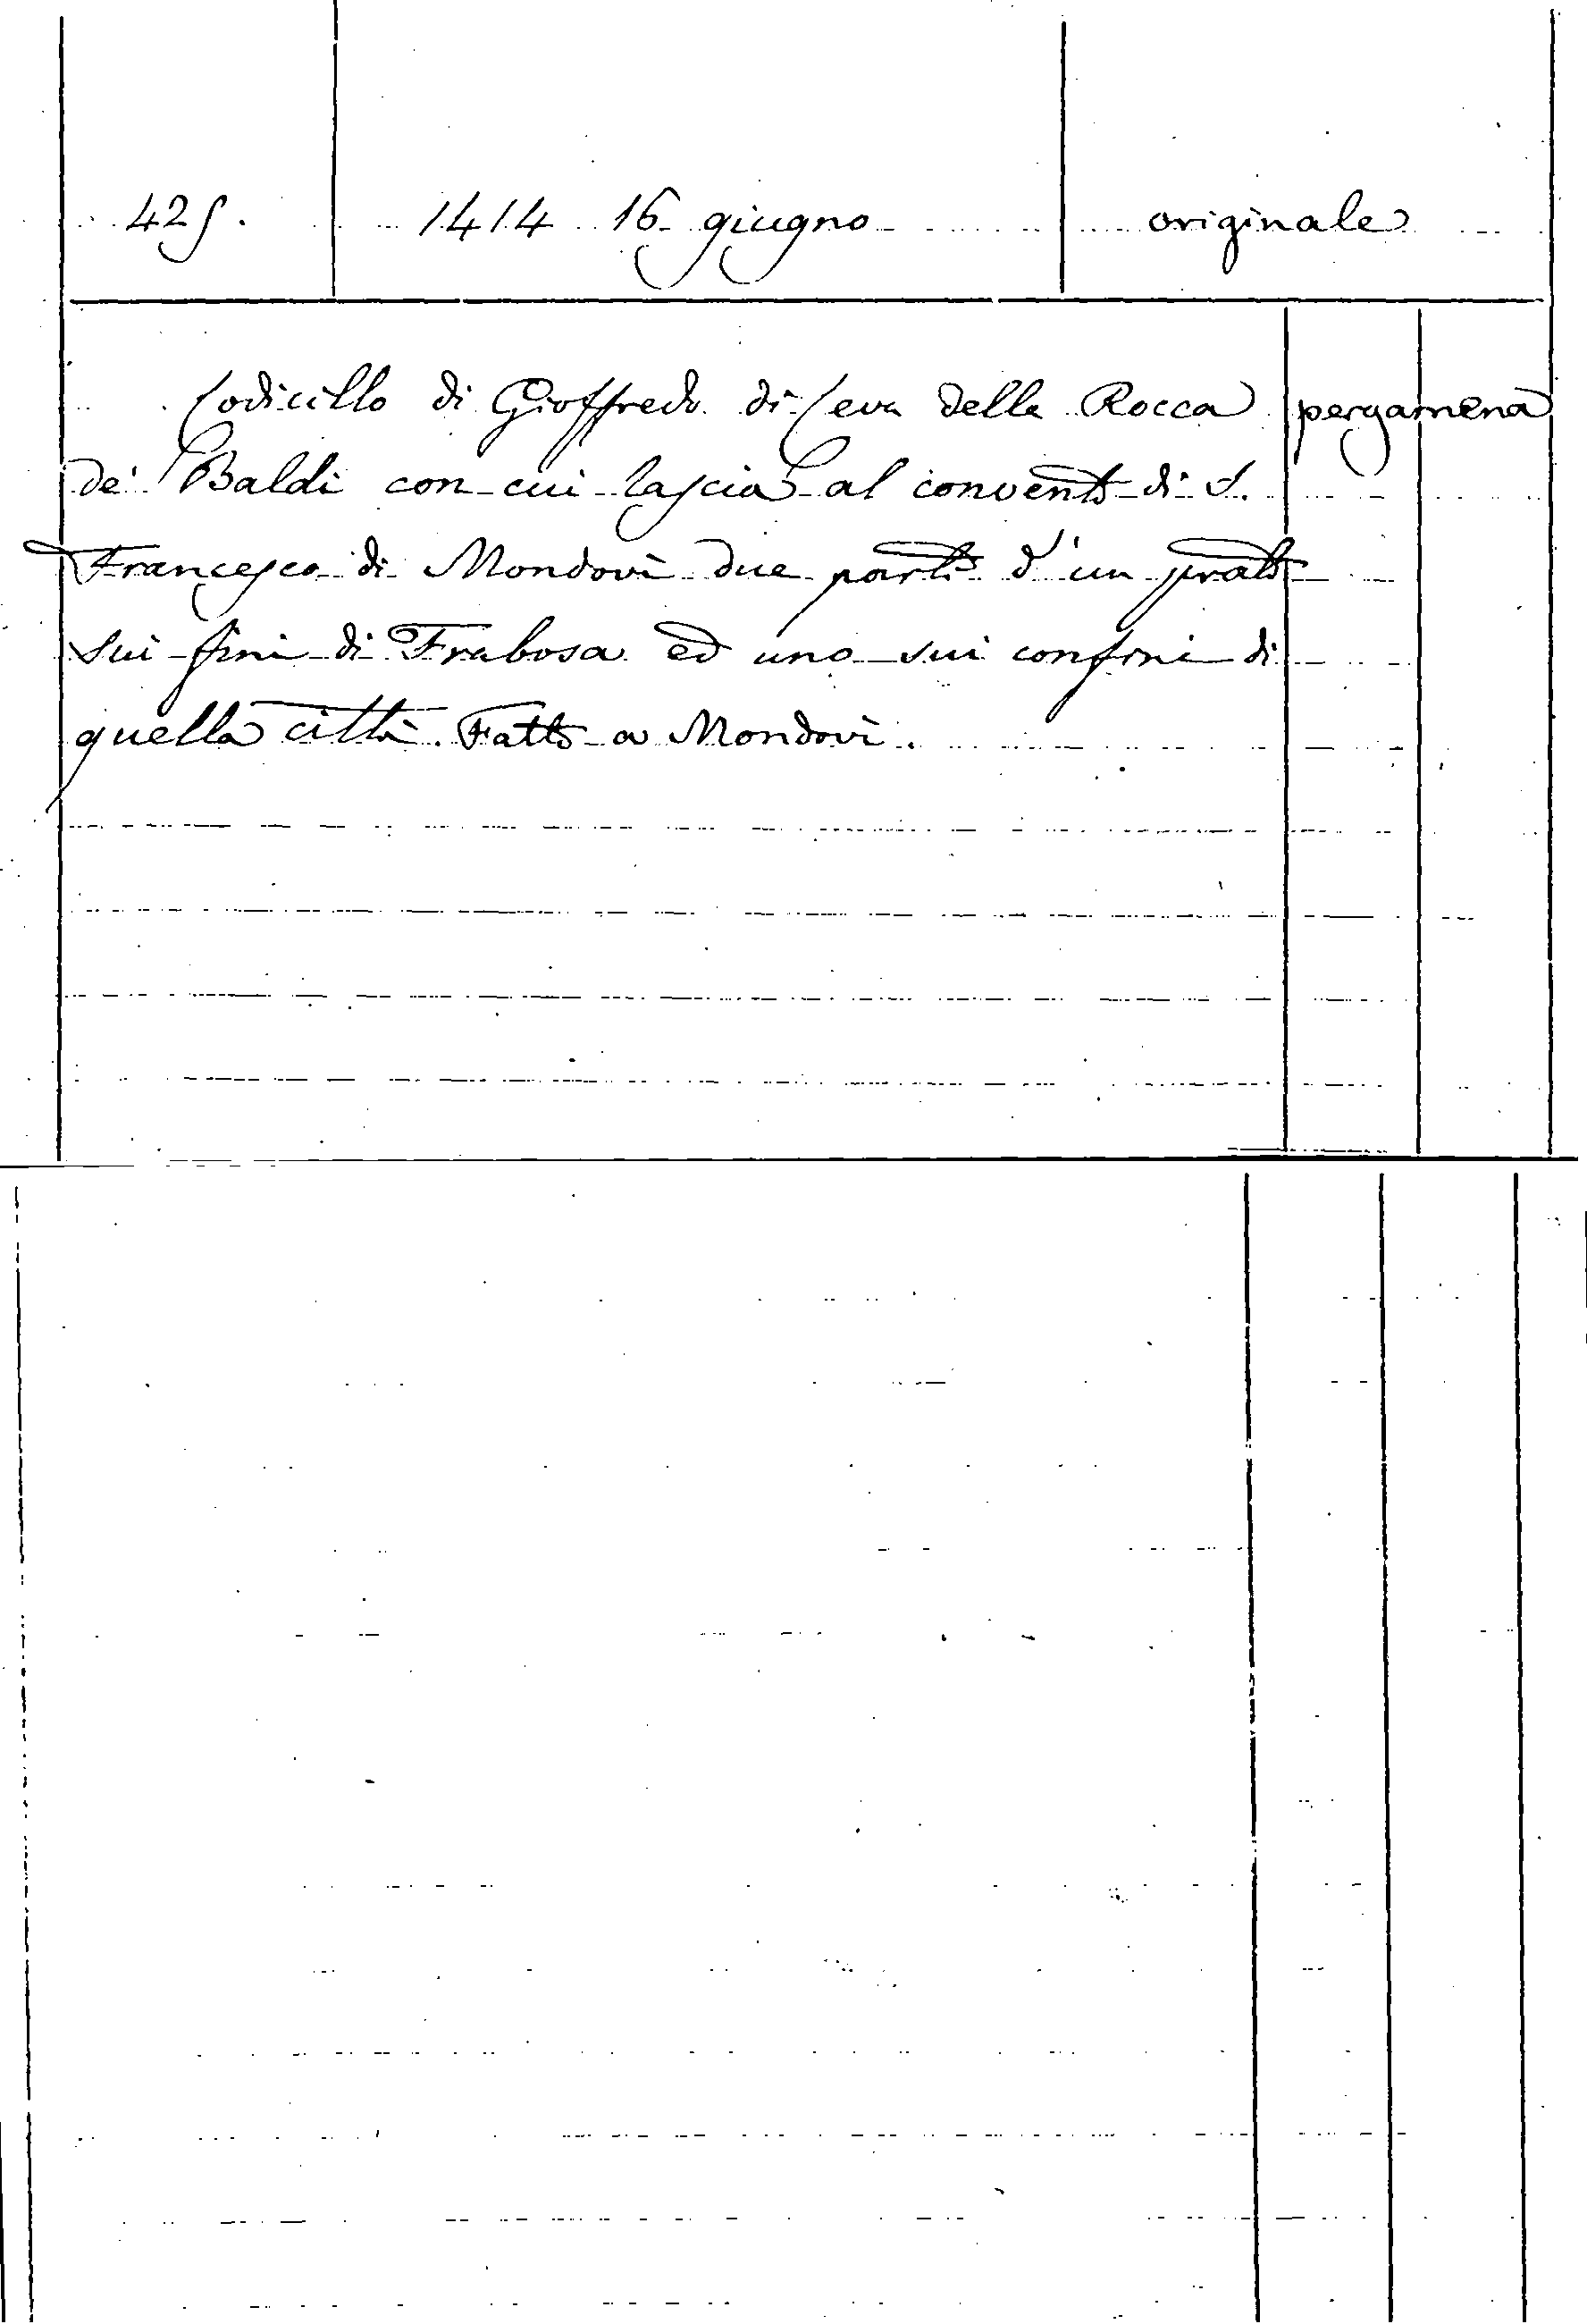 425. 1414 16 giugno originale
Codicillo di Gioffredo di Ceva della Rocca pergamena
de' Baldi con cui lascia al convento di S.
Francesco di Mondovì due parti d'un prato
sui fini di Frabosa ed uno sui confini di
quella città. Fatto a Mondovì.